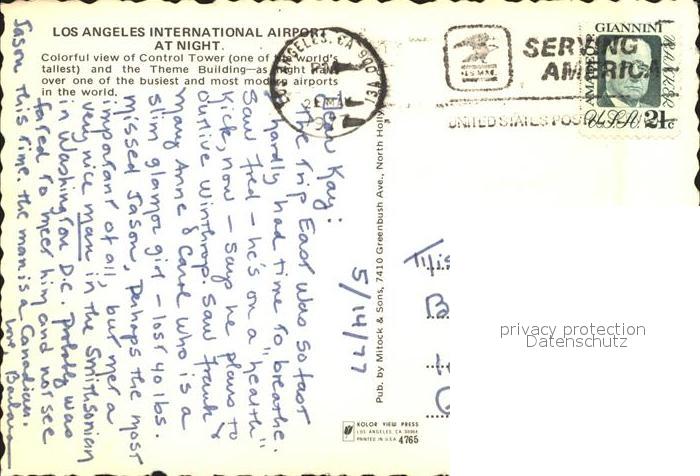 LOS ANGELES INTERNATIONAL AIRPORT
AT NIGHT.
Colorful view of Control Tower (one of the world's
tallest) and the Theme Building—as night falls
over one of the busiest and most modern airports
in the world.
LOS ANGELES, CA 900
PM
SERVING
AMERICA
U.S. MAIL
UNITED STATES POS
GIANNINI
AMADEO P.
BANKER
U.S.A. 21c
5/14/77
Dear Kay:
The trip East was so fast
I hardly had time to "breathe."
Saw Fred - he's on a "health"
kick, now - says he plans to
outlive Winthrop. Saw Frank &
Mary Anne & Carol who is a
slim glamor girl - lost 40 lbs.
Missed Jason, Perhaps the most
important of all, but met a
very nice man in the Smithsonian
in Washington D.C. Probably was
fated to meet him and not see
Jason this time. the man is a Canadian.
love
Miss
B
Pub. by Mitock & Sons, 7410 Greenbush Ave., North Holly
KOLOR VIEW PRESS
LOS ANGELES, CA
PRINTED IN U.S.A. 4765
privacy protection
Datenschutz